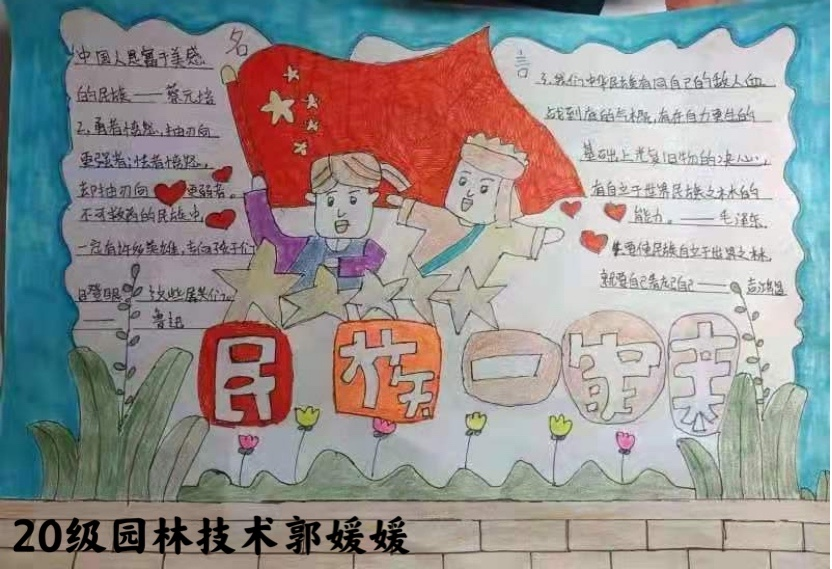 名言
中国人是富于美感
的民族——蔡元培
2、勇者愤怒,抽刃向
更强者;怯者愤怒,
却抽刃向更弱者。
不可救药的民族中,
一定有许多英雄,专向孩子们
瞪眼这些孱头们。
——鲁迅
3、我们中华民族有同自己的敌人血
战到底的气概,有在自力更生的
基础上光复旧物的决心,
有自立于世界民族之林的
能力。——毛泽东
要使民族自立于世界之林,
就要自己靠自己——
民族一家亲
20级园林技术郭媛媛